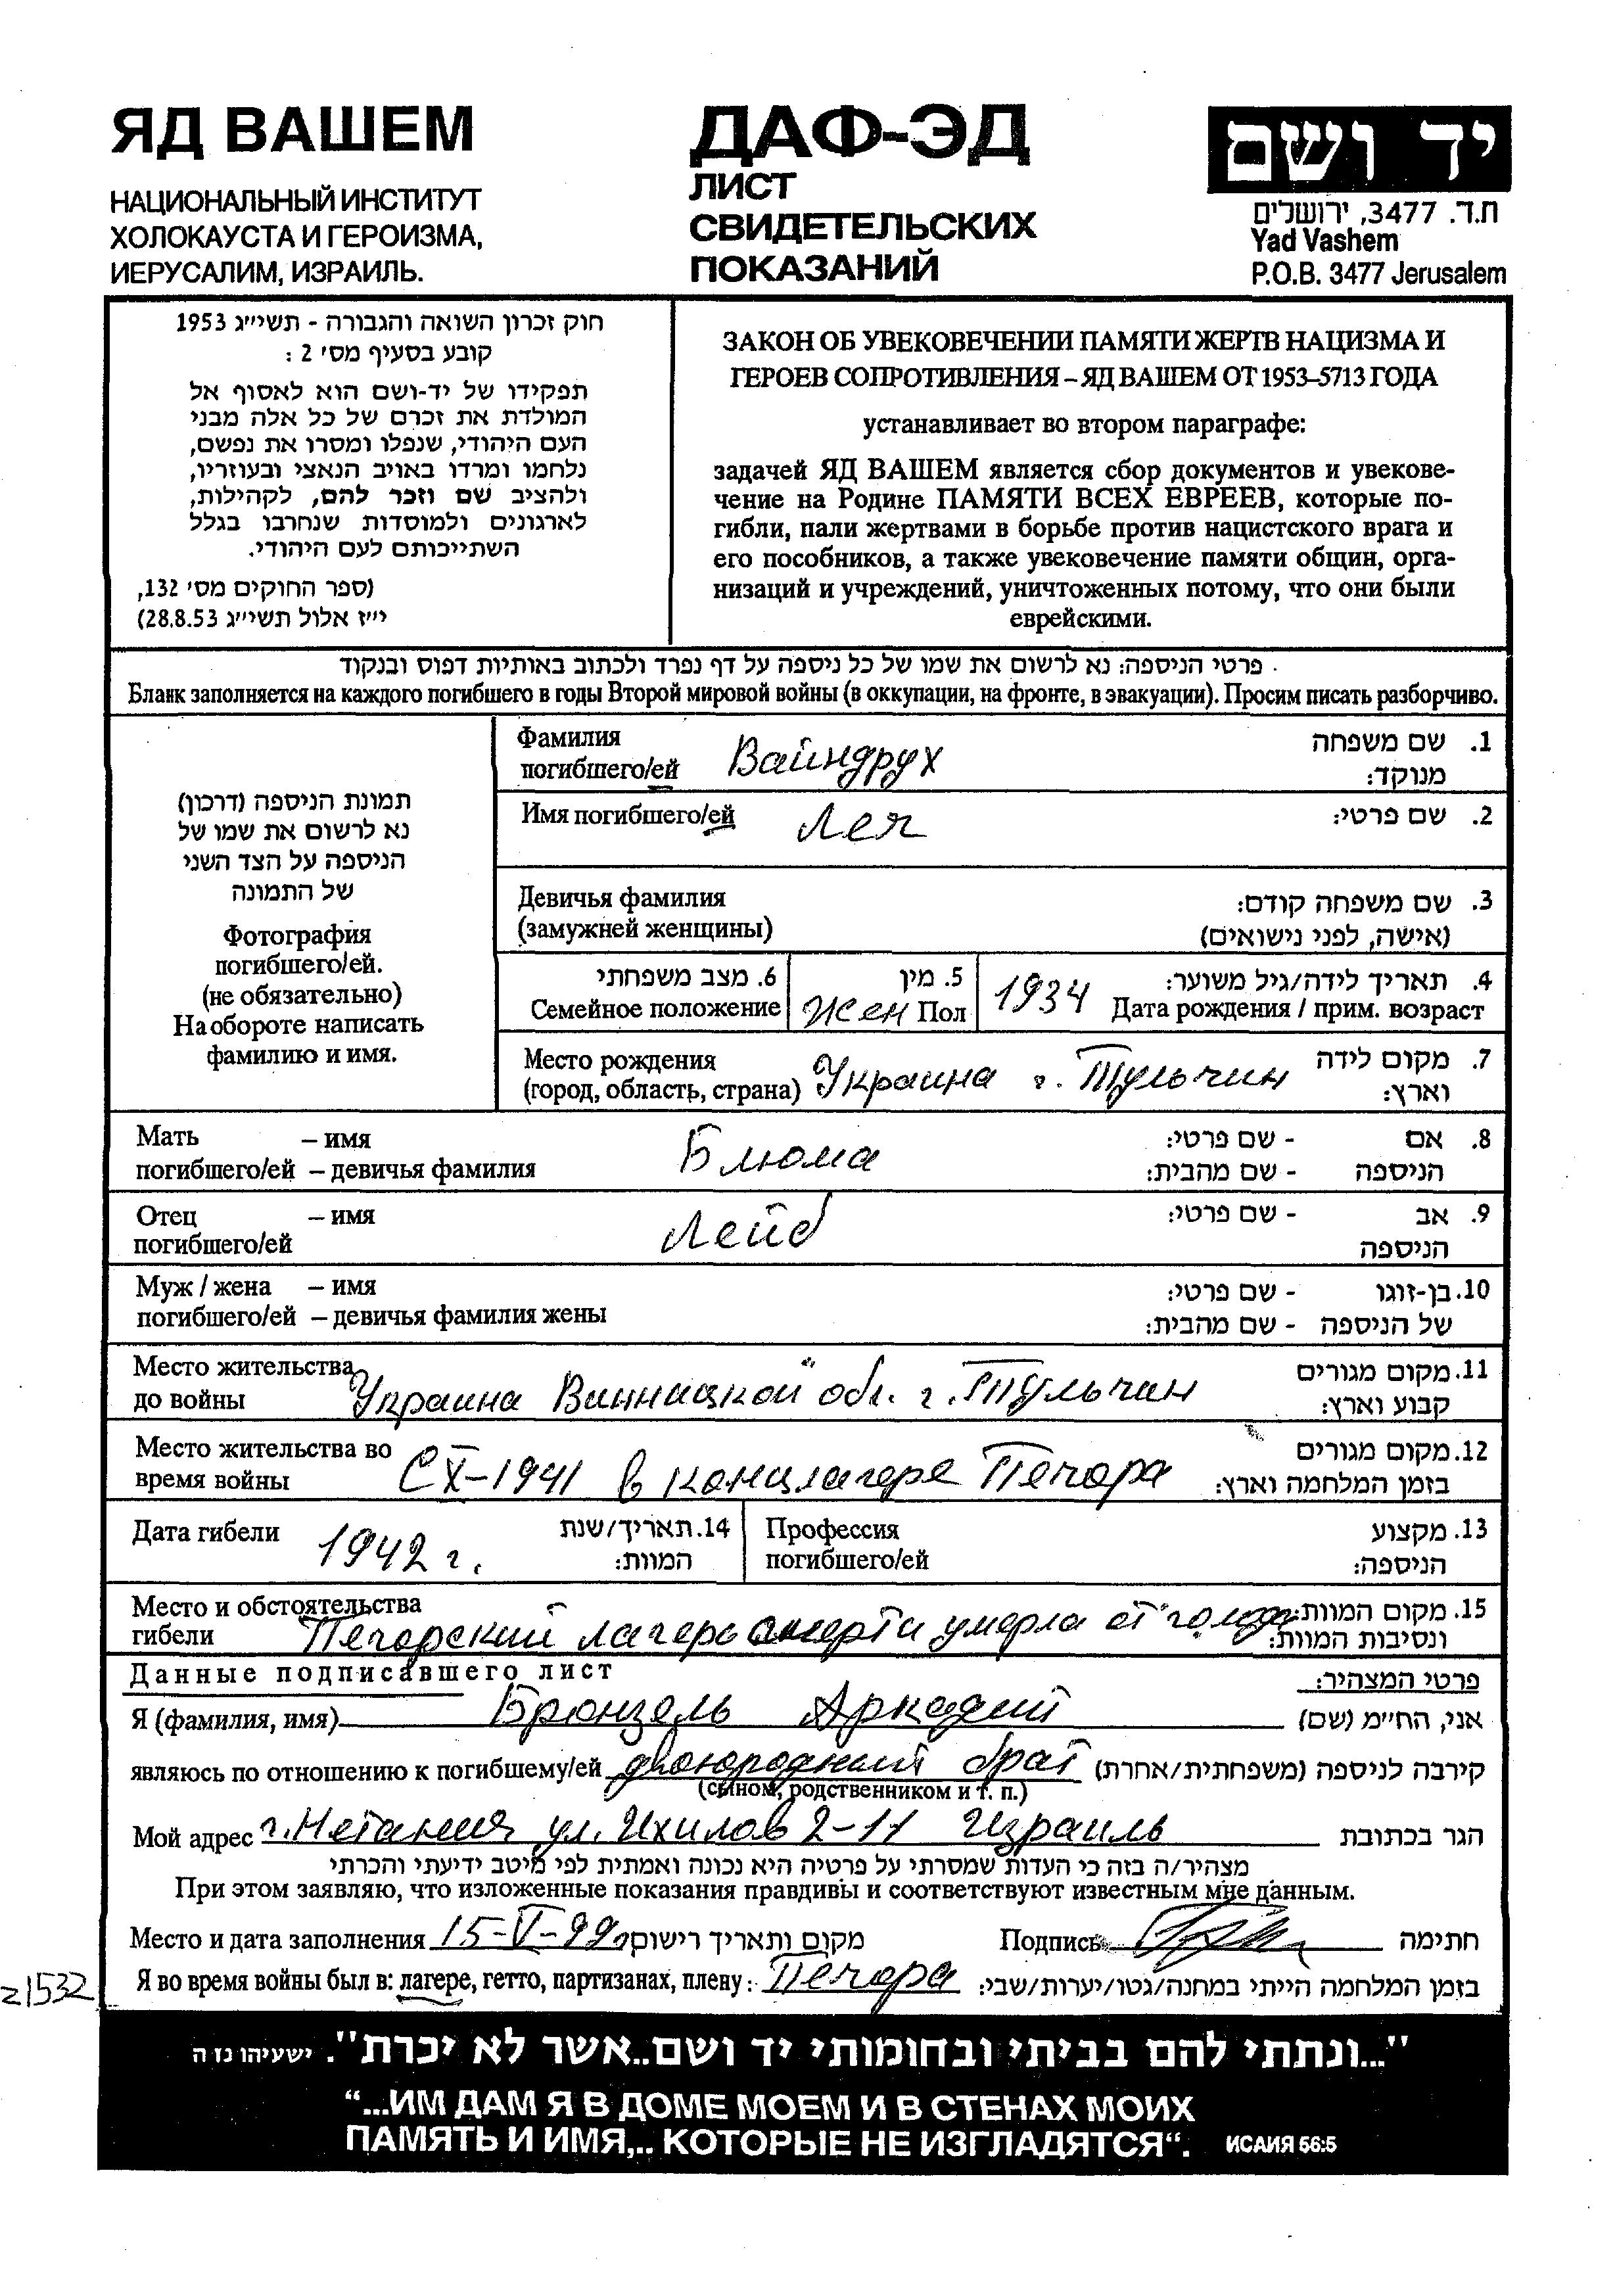 ЯД ВАШЕМ
НАЦИОНАЛЬНЫЙ ИНСТИТУТ
ХОЛОКАУСТА И ГЕРОИЗМА,
ИЕРУСАЛИМ, ИЗРАИЛЬ.
ДАФ-ЭД
ЛИСТ
СВИДЕТЕЛЬСКИХ
ПОКАЗАНИЙ
יד ושם
ת.ד. 3477, ירושלים
Yad Vashem
P.O.B. 3477 Jerusalem
חוק זכרון השואה והגבורה - תשי״ג 1953
קובע בסעיף מס׳ 2 :
תפקידו של יד-ושם הוא לאסוף אל
המולדת את זכרם של כל אלה מבני
העם היהודי, שנפלו ומסרו את נפשם,
נלחמו ומרדו באויב הנאצי ובעוזריו,
ולהציב שם וזכר להם, לקהילות,
לארגונים ולמוסדות שנחרבו בגלל
השתייכותם לעם היהודי.
(ספר החוקים מס׳ 132,
י״ז אלול תשי״ג 28.8.53)
ЗАКОН ОБ УВЕКОВЕЧЕНИИ ПАМЯТИ ЖЕРТВ НАЦИЗМА И
ГЕРОЕВ СОПРОТИВЛЕНИЯ – ЯД ВАШЕМ ОТ 1953–5713 ГОДА
устанавливает во втором параграфе:
задачей ЯД ВАШЕМ является сбор документов и увекове-
чение на Родине ПАМЯТИ ВСЕХ ЕВРЕЕВ, которые по-
гибли, пали жертвами в борьбе против нацистского врага и
его пособников, а также увековечение памяти общин, орга-
низаций и учреждений, уничтоженных потому, что они были
еврейскими.
פרטי הניספה: נא לרשום את שמו של כל ניספה על דף נפרד ולכתוב באותיות דפוס ובנקוד
Бланк заполняется на каждого погибшего в годы Второй мировой войны (в оккупации, на фронте, в эвакуации). Просим писать разборчиво.
תמונת הניספה (דרכון)
נא לרשום את שמו של
הניספה על הצד השני
של התמונה
Фотография
погибшего/ей.
(не обязательно)
На обороте написать
фамилию и имя.
Фамилия
погибшего/ей Вайндрух
1. שם משפחה
מנוקד:
Имя погибшего/ей Лея 2. שם פרטי:
Девичья фамилия
(замужней женщины)
3. שם משפחה קודם:
(אישה, לפני נישואים)
6. מצב משפחתי
Семейное положение
5. מין
Жен Пол
1934
4. תאריך לידה/גיל משוער:
Дата рождения / прим. возраст
Место рождения
(город, область, страна) Украина г. Тульчин
7. מקום לידה
וארץ:
Мать – имя
погибшего/ей – девичья фамилия
Блюма
8. אם - שם פרטי:
הניספה - שם מהבית:
Отец – имя
погибшего/ей
Лейб
9. אב - שם פרטי:
הניספה
Муж / жена – имя
погибшего/ей – девичья фамилия жены
10. בן-זוגו - שם פרטי:
של הניספה - שם מהבית:
Место жительства
до войны Украина Винницкой обл. г. Тульчин
11. מקום מגורים
קבוע וארץ:
Место жительства во
время войны С X-1941 в концлагере Печора
12. מקום מגורים
בזמן המלחמה וארץ:
Дата гибели 1942 г.
14. תאריך/שנת
המוות:
Профессия
погибшего/ей
13. מקצוע
הניספה:
Место и обстоятельства
гибели Печорский лагерь смерти умерла от голода
15. מקום המוות:
ונסיבות המוות:
Данные подписавшего лист פרטי המצהיר:
Я (фамилия, имя) Бронзель Аркадий אני, הח״מ (שם)
являюсь по отношению к погибшему/ей двоюродный брат קירבה לניספה (משפחתית/אחרת)
(сыном, родственником и т. п.)
Мой адрес г. Нетания ул. Ихилов 2-11 Израиль הגר בכתובת
מצהיר/ה בזה כי העדות שמסרתי על פרטיה היא נכונה ואמתית לפי מיטב ידיעתי והכרתי
При этом заявляю, что изложенные показания правдивы и соответствуют известным мне данным.
Место и дата заполнения 15-V-99г מקום ותאריך רישום Подпись חתימה
Я во время войны был в: лагере, гетто, партизанах, плену: Печора בזמן המלחמה הייתי במחנה/גטו/יערות/שבי:
21532
"...ונתתי להם בביתי ובחומותי יד ושם..אשר לא יכרת". ישעיהו נז ה
“...ИМ ДАМ Я В ДОМЕ МОЕМ И В СТЕНАХ МОИХ
ПАМЯТЬ И ИМЯ,.. КОТОРЫЕ НЕ ИЗГЛАДЯТСЯ“. ИСАИЯ 56:5